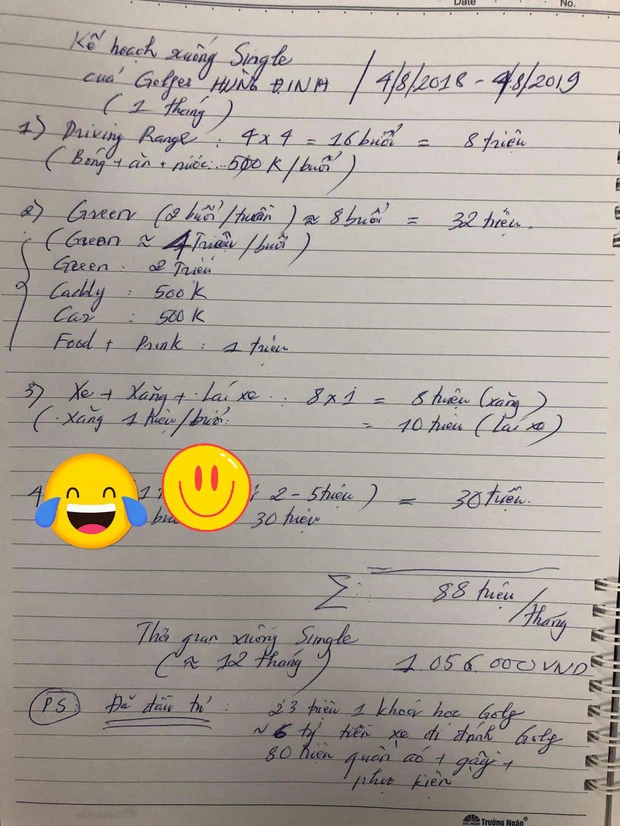 Date No.
Kế hoạch xuống Single
của Golfer HÙNG ĐINH / 4/8/2018 - 4/8/2019
( 1 tháng )
1) Driving Range : 4 x 4 = 16 buổi = 8 triệu
( Bóng + ăn + nước... 500 K / buổi )
2) Green (2 buổi / tuần ) ≈ 8 buổi = 32 triệu.
( Green ≈ 4 Triệu / buổi )
Green : 2 Triệu
Caddy : 500 K
Car : 500 K
Food + Drink : 1 triệu
3) Xe + Xăng + Lái xe .. 8 x 1 = 8 triệu (xăng)
( Xăng 1 triệu / buổi = 10 triệu ( Lái xe)
2 - 5 triệu ) = 30 triệu.
30 triệu
Σ : 88 triệu / tháng
Thời gian xuống Single
( ≈ 12 tháng ) 1.056.000 VND
PS: Đã đầu tư : 23 triệu 1 khoá học Golf
≈ 6 tỷ tiền xe đi đánh Golf
80 triệu quần áo + gậy +
phụ kiện
Trường Ngân